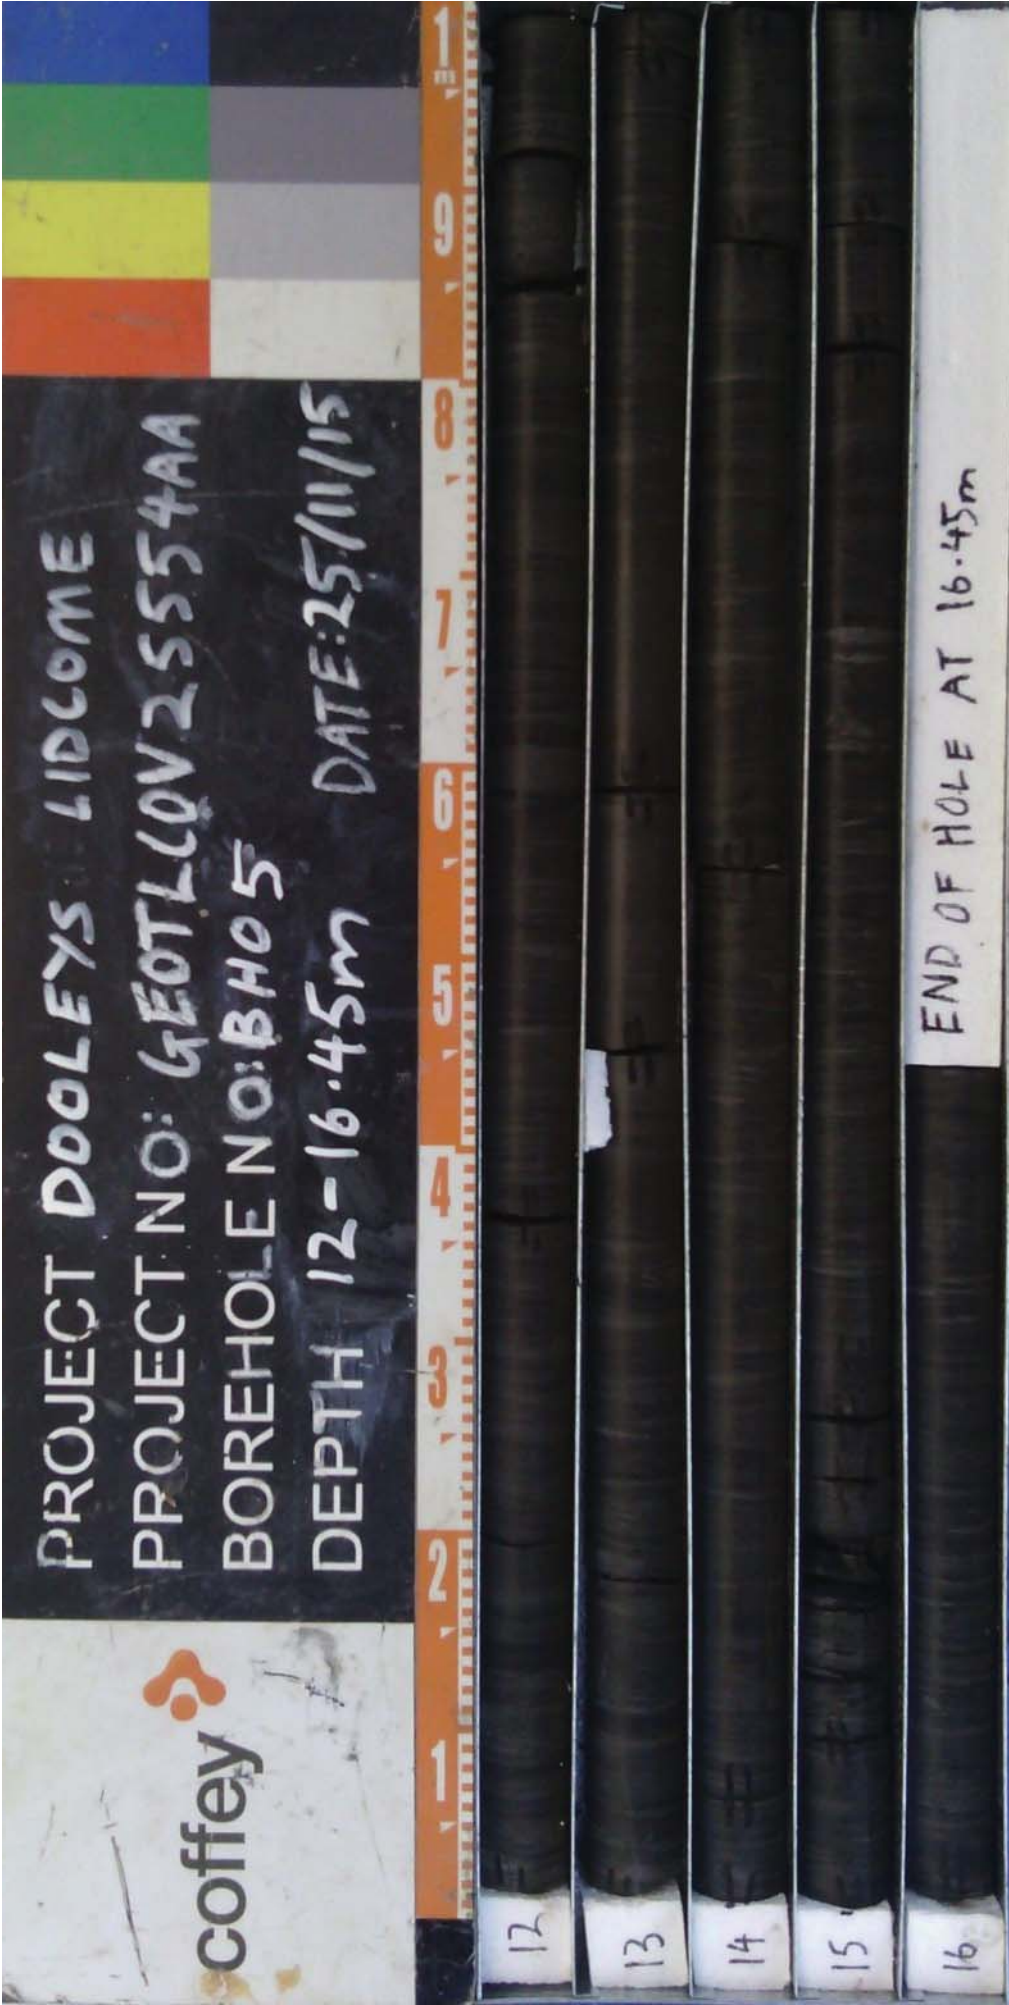 PROJECT DOOLEYS LIDCOME
PROJECT NO: GEOTLCOV25554AA
BOREHOLE NO: BH05
DEPTH 12-16.45m DATE: 25/11/15
coffey
1m
9
8
7
6
5
4
3
2
1
12
13
14
15
16
END OF HOLE AT 16.45m